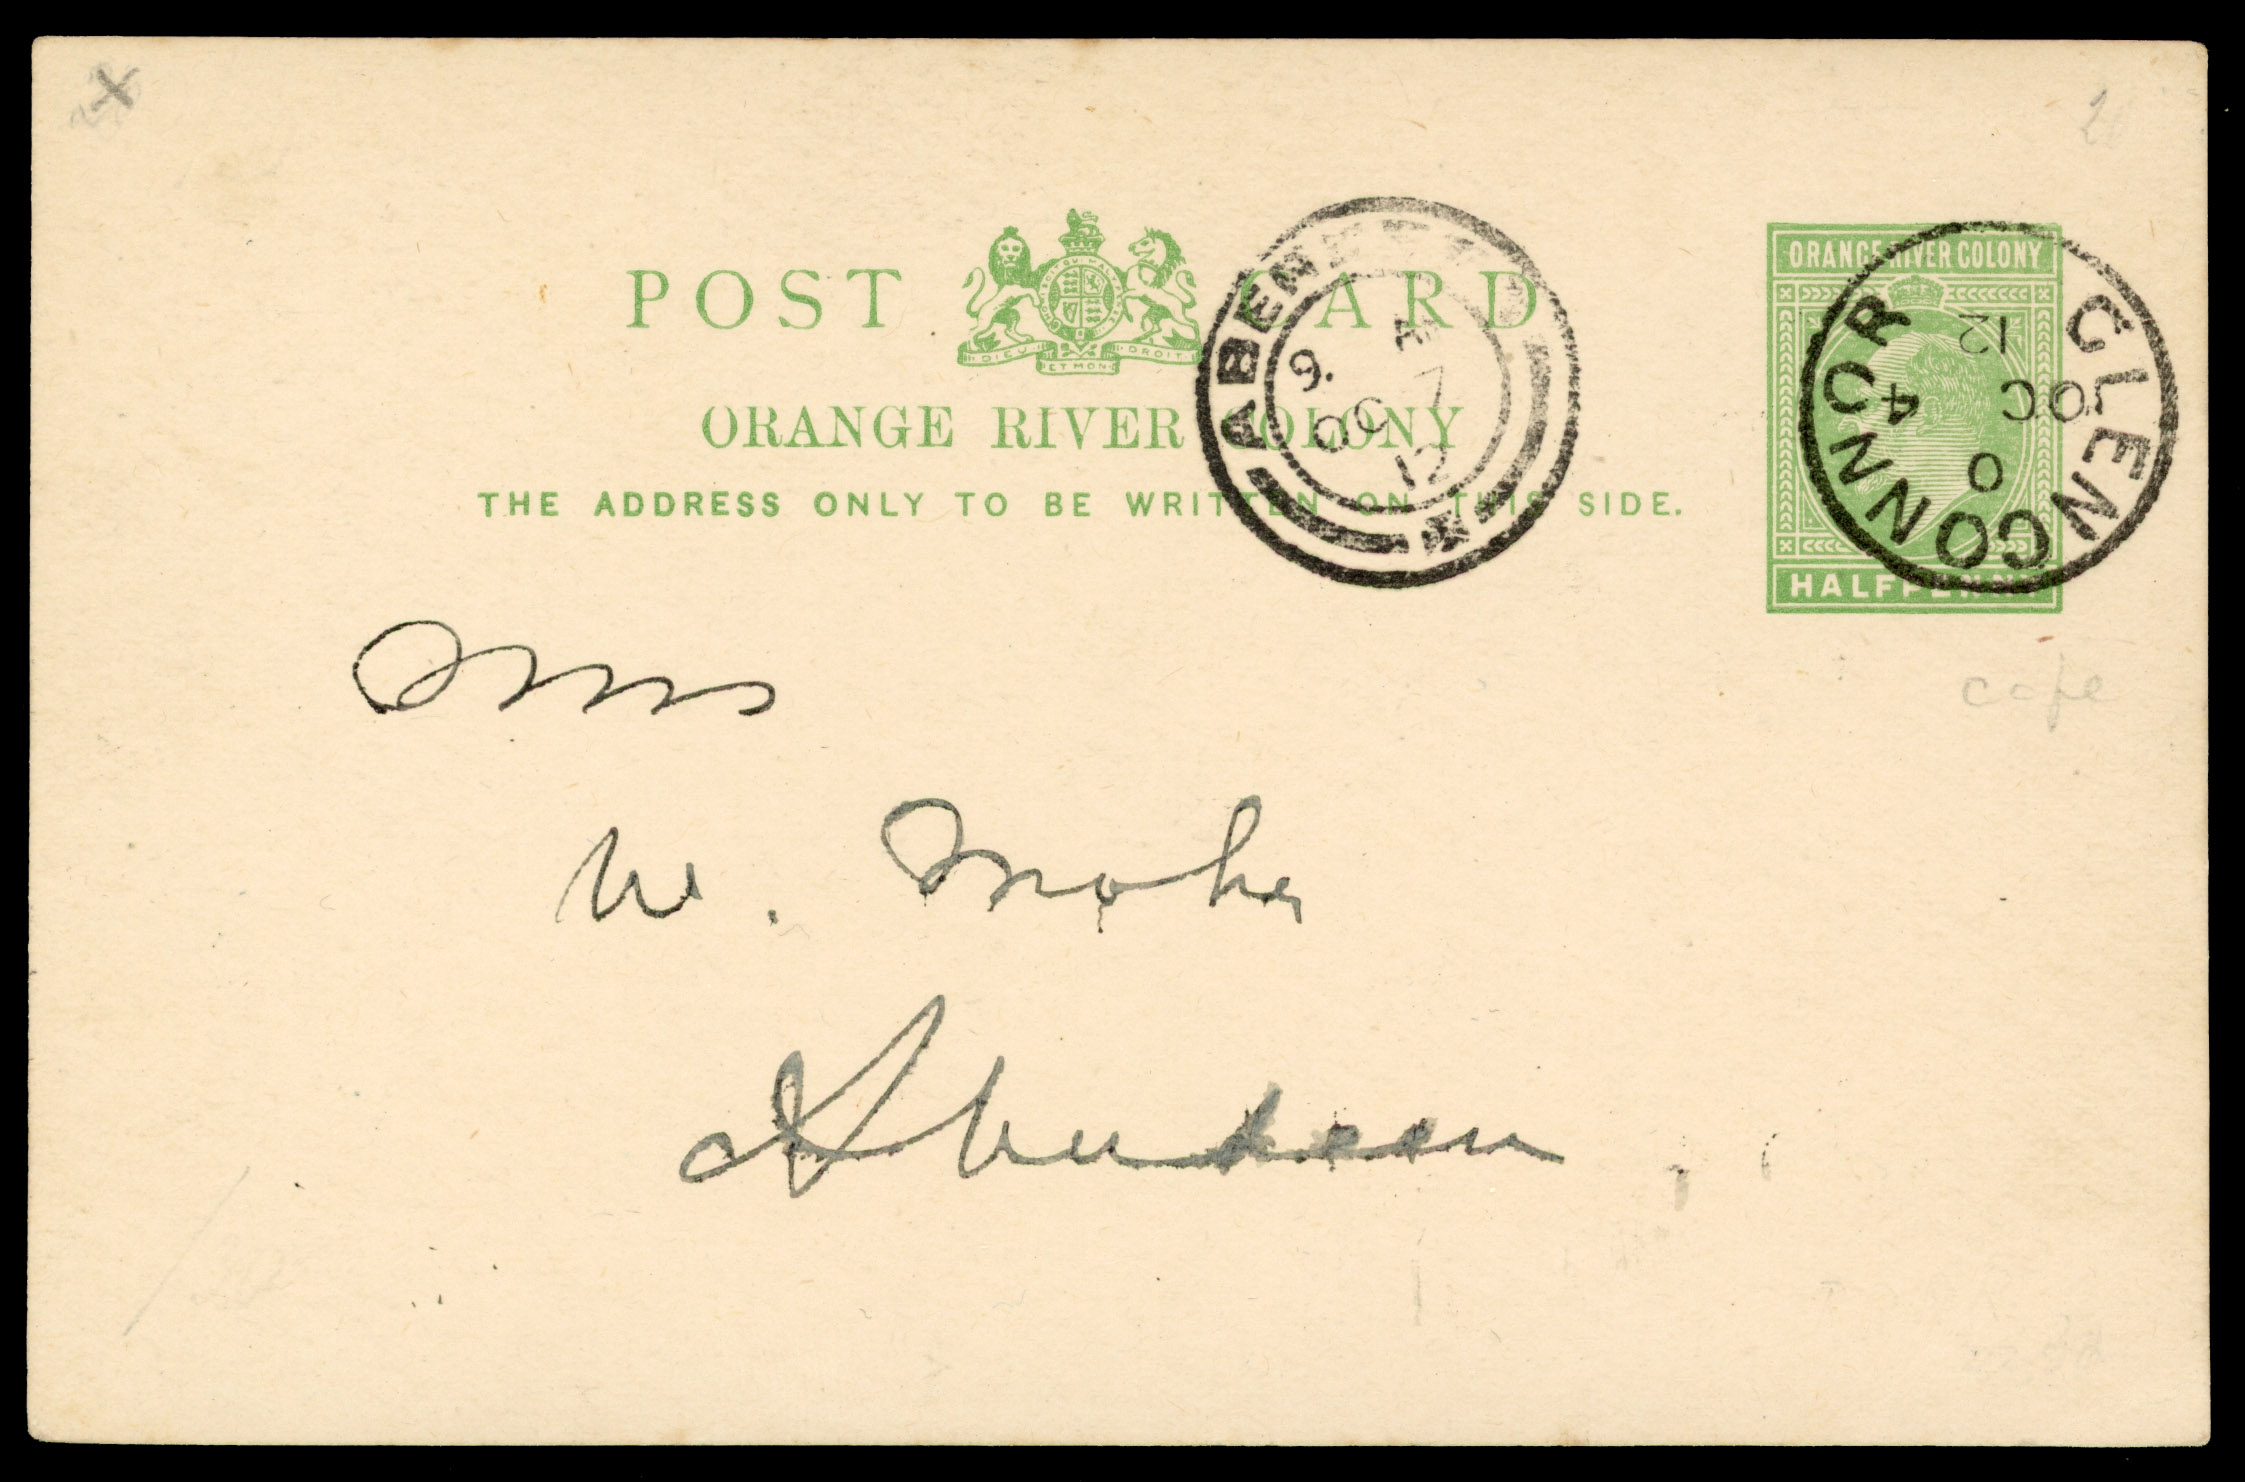 POST CARD
DIEU ET MON DROIT
ORANGE RIVER COLONY
THE ADDRESS ONLY TO BE WRITTEN ON THIS SIDE.
ABERDEEN
9. E
OC 7
12
ORANGE RIVER COLONY
HALFPENNY
GLENCONNOR
0
OC 4
12
cape
Mrs
W. Maher
Aberdeen